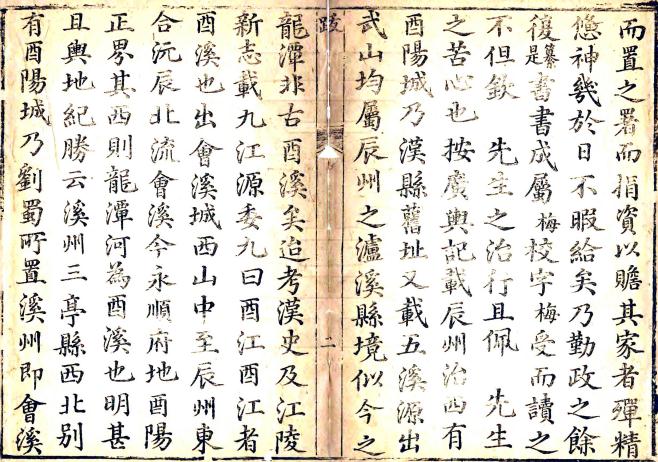 而置之署而捐資以贍其家者殫精
憊神幾於日不暇給矣乃勤政之餘
復是纂書書成屬梅校字梅受而讀之
不但欽　先生之治行且佩　先生
之苦心也按廣輿記載辰州治西有
酉陽城乃漢縣舊址又載五溪源出
武山均屬辰州之瀘溪縣境似今之
跋
二
龍潭非古酉溪矣迨考漢史及江陵
新志載九江源委九曰酉江酉江者
酉溪也出會溪城西山中至辰州東
合沅辰北流會溪今永順府地酉陽
正界其西則龍潭河為酉溪也明甚
且輿地紀勝云溪州三亭縣西北別
有酉陽城乃劉蜀所置溪州即會溪